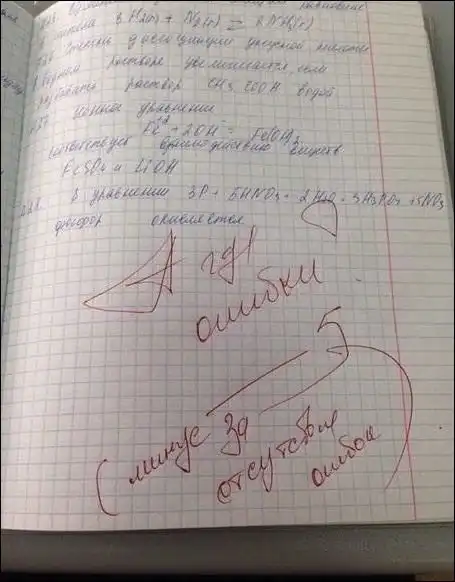 3 H2(г) + N2(г) ⇄ 2 NH3(г)
Степень диссоциации уксусной кислоты
в водном растворе увеличивается, если
разбавить раствор CH3COOH водой
Ионное уравнение
Fe+2 + 2OH- = Fe(OH)2
соответствует взаимодействию веществ
FeSO4 и LiOH
В уравнении 3P + 5HNO3 + 2H2O = 3H3PO4 + 5NO
фосфор окисляется
А где
ошибки
5
(минус за
отсутствие
ошибок